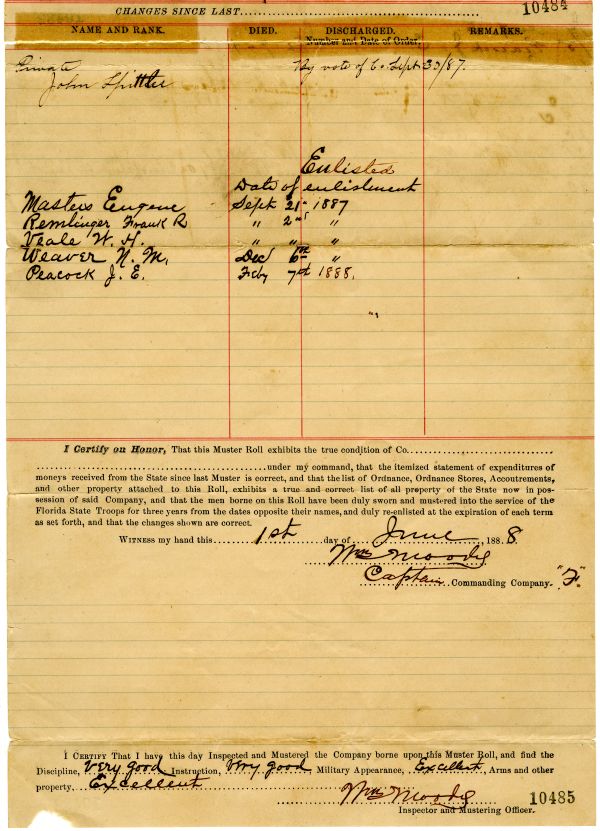 CHANGES SINCE LAST 10484
NAME AND RANK. DIED. DISCHARGED. REMARKS.
Number and Date of Order.
Private By vote of Co. Sept 30/87.
John Spittler
Enlisted
Date of enlistment
Masters Eugene Sept 21st 1887
Remlinger Frank R " 2nd "
Veale W. H. " " "
Weaver N. M. Dec 6th "
Peacock J. E. Feby 7th 1888.
I Certify on Honor, That this Muster Roll exhibits the true condition of Co.
under my command, that the itemized statement of expenditures of
moneys received from the State since last Muster is correct, and that the list of Ordnance, Ordnance Stores, Accoutrements,
and other property attached to this Roll, exhibits a true and correct list of all property of the State now in pos-
session of said Company, and that the men borne on this Roll have been duly sworn and mustered into the service of the
Florida State Troops for three years from the dates opposite their names, and duly re-enlisted at the expiration of each term
as set forth, and that the changes shown are correct.
WITNESS my hand this 1st day of June, 188 8
Wm Moody
Captain Commanding Company "F"
I CERTIFY That I have this day Inspected and Mustered the Company borne upon this Muster Roll, and find the
Discipline, Very good Instruction, Very good Military Appearance, Excellent, Arms and other
property, Excellent
Wm Moody 10485
Inspector and Mustering Officer.